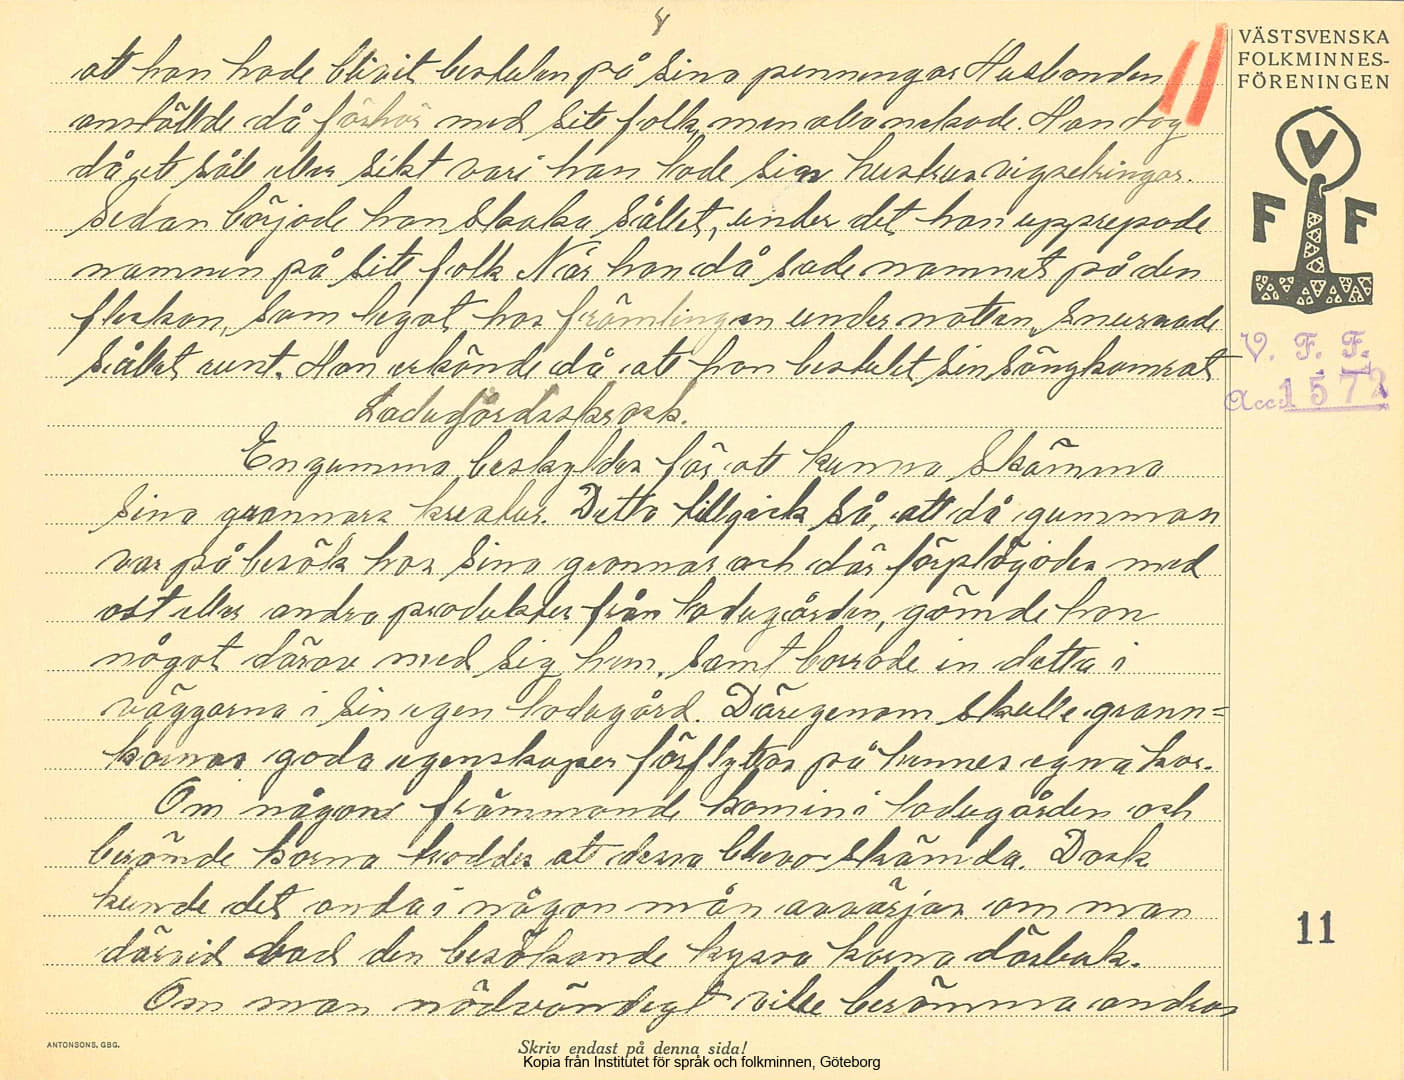 8
att han hade blivit bestulen på sina penningar Husbonden
anställde då förhör med sitt folk, men alla nekade. Han tog
då ett såll eller sikt vari han lade sin hustrus vigselringar.
Sedan började han skaka sållet, under det han upprepade
namnen på sitt folk När han då sade namnet på den
flickan, som legat hos främlingen under natten, snurrade
sållet runt. Hon erkände då att hon bestulit sin sängkamrat
Ladugårdsskrock.
En gumma beskyldes för att kunna skämma
sina grannars kreatur. Detta tillgick så, att då gumman
var på besök hos sina grannar och där förplägades med
ost eller andra produkter från ladugården, gömde hon
något därav med sig hem, samt borrade in detta i
väggarna i sin egen ladugård. Därigenom skulle grann=
kornas goda egenskaper förflyttas på hennes egna kor.
Om någon främmande kom in i ladugården och
berömde korna troddes att dessa blevo skämda. Dock
kunde det onda i någon mån avvärjas om man
därvid bad den besökande kyssa korna därbak.
Om man nödvändigt ville berömma andras
VÄSTSVENSKA
FOLKMINNES-
FÖRENINGEN
V
F F
V. F. F.
Acc. 1572
11
ANTONSONS. GBG.
Skriv endast på denna sida!
Kopia från Institutet för språk och folkminnen, Göteborg